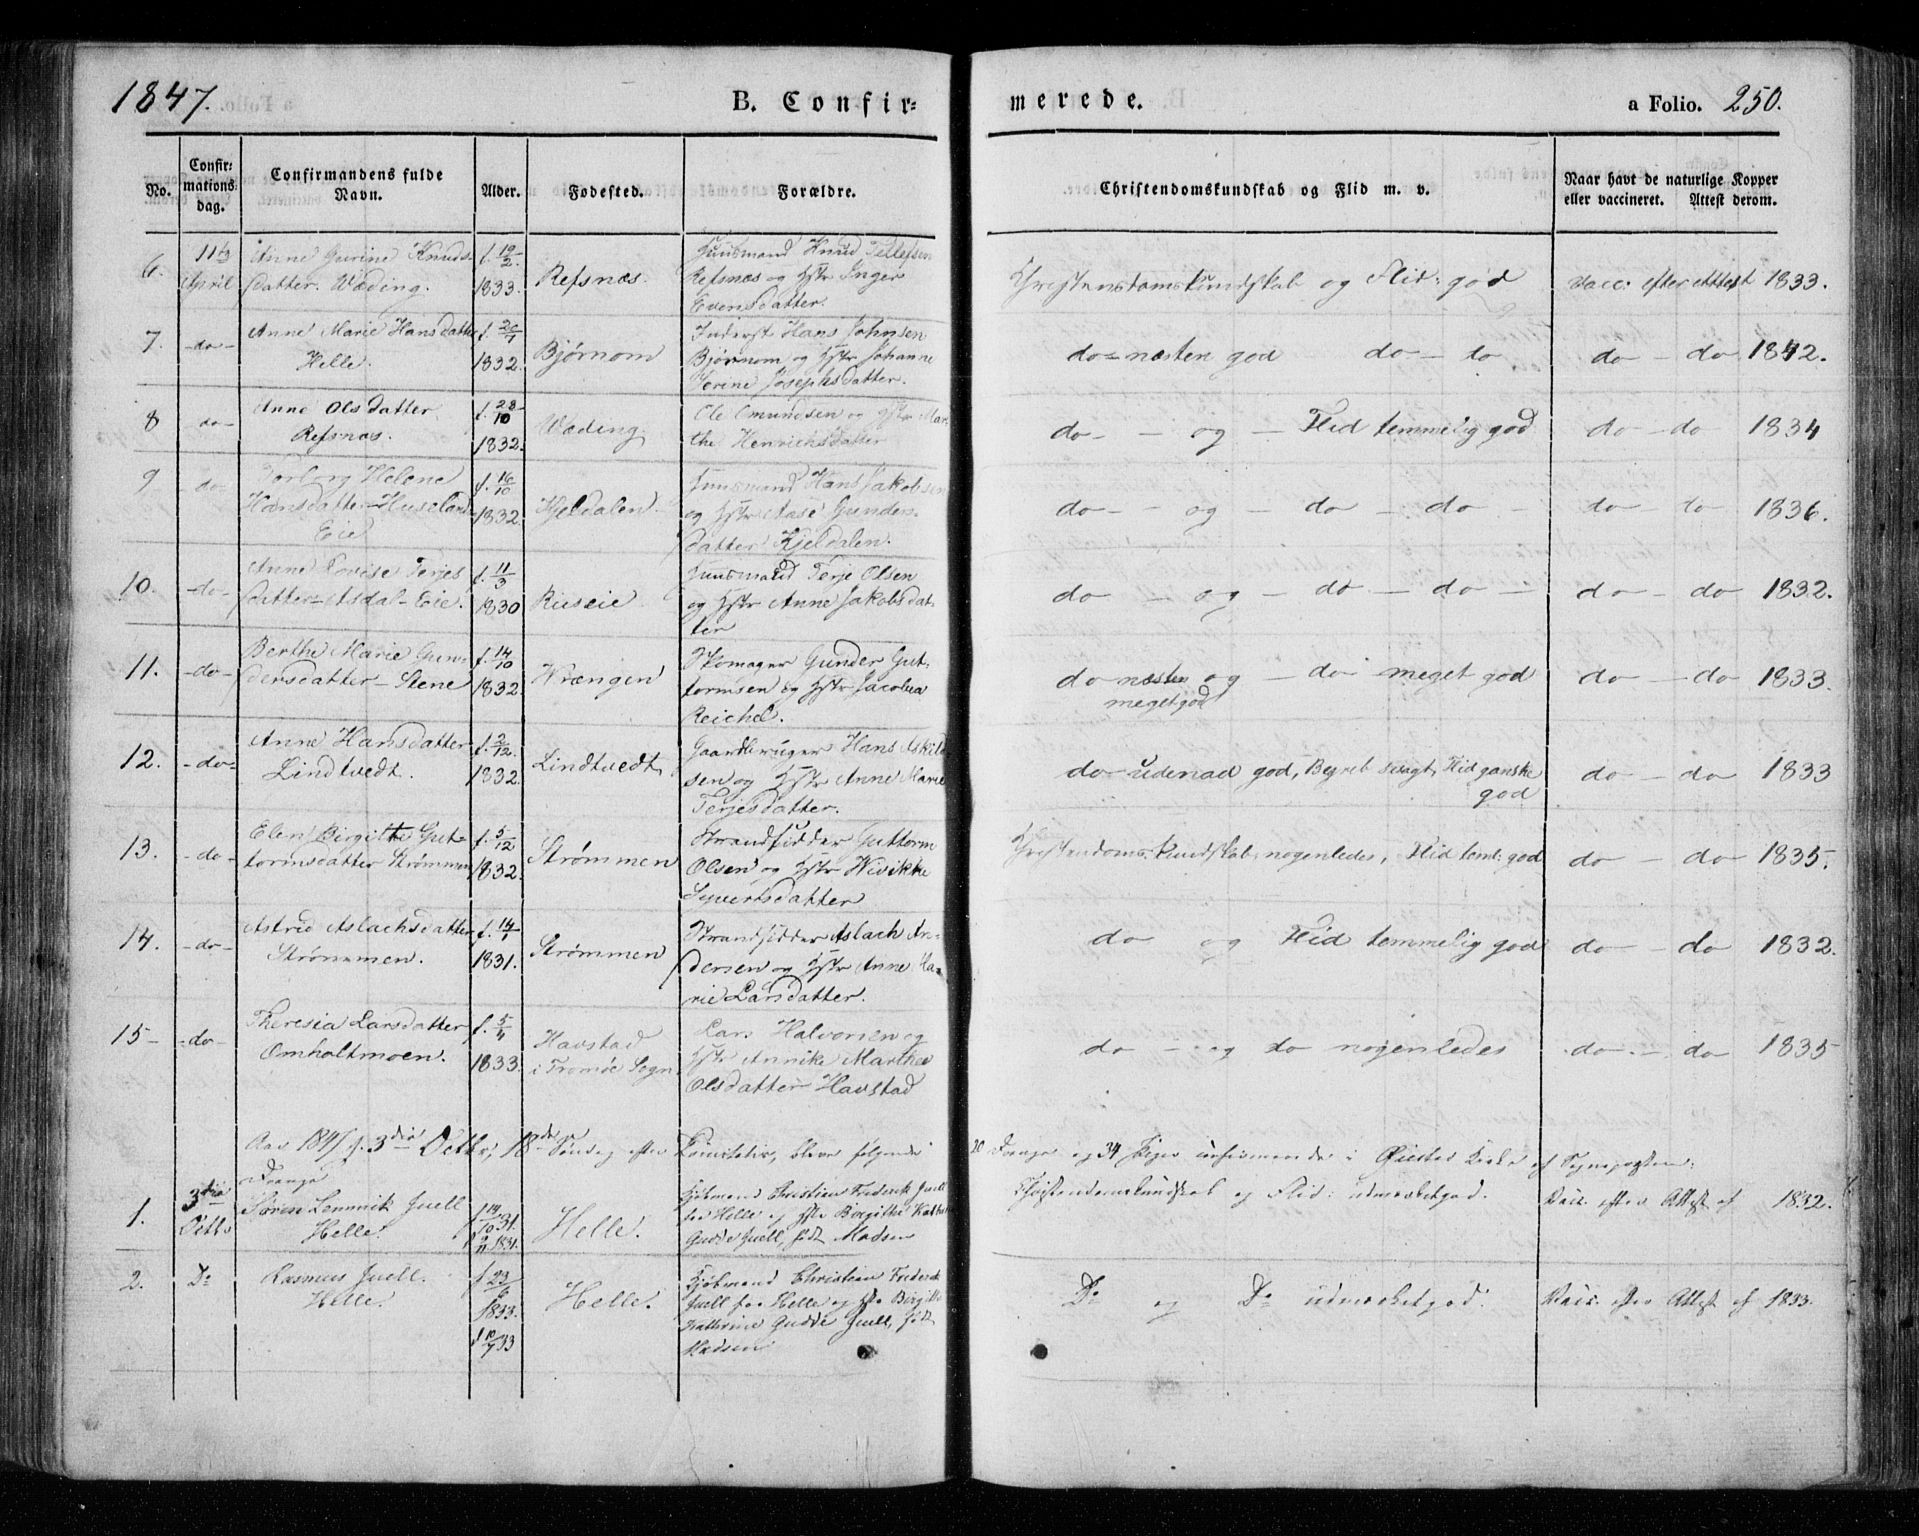 1847.
B. Confir=
merede.
a Folio. 250.
No.
Confir=
mations
dag.
Confirmandens fulde
Navn.
Alder.
Fødested.
Forældre.
Christendomskundskab og Flid m. v.
Naar havt de naturlige Kopper
eller vaccineret. Attest derom.
6. 11te April
Anne Gurine Knuds-
datter. Wæding.
f. 19/2 1833.
Refsnæs.
Huusmand Knud Tellefsen
Refsnæs og Hstr Inger
Evensdatter.
Christensdomskundskab og Flid: god
Vacc: efter Attest 1833.
7. -do-
Anne Marie Hansdatter
Helle.
1832.
Bjørnom
Inderst Hans Johnsen
Bjørnom og Hstr Johanne
Josephsdatter.
do næsten god do - do
do - do 1842.
8 do-
Anne Olsdatter
Refsnæs.
f. 28/10 1832.
Wæding.
Ole Omundsen og Hstr Mar
the Henrichsdatter
do - - og - Flid temmelig god
do - do 1834
9 do
Torborg Helene
Hansdatter Huseland
Eie
f. 16/10 1832.
Kjeldalen.
Huusmand Hans Jakobsen
og Hstr Aase Gunders
datter Kjeldalen.
do - - og - do - do -
do - do 1836.
10. -do-
Anne Lovise Terjes
datter - Asdal - Eie.
f. 11/3 1830
Riiseie
Huusmand Terje Olsen
og Hstr Anne Jakobsdat-
ter
do - og - do - do -
do - do 1832.
11. -do-
Berthe Marie Gun-
dersdatter - Stene
f. 14/10 1832.
Wrængen
Skomager Gunder Gut-
tormsen og Hstr Jacobea
Reichel.
do næsten og - do meget god
meget god
do - do 1833.
12. -do-
Anne Hansdatter
Lindtvedt.
f. 2/12 1832.
Lindtvedt
Gaardbruger Hans Askild
sen og Hstr Anne Marie
Terjesdatter.
do udenad god, Begreb svagt, Flid ganske
god
do - do 1833
13. -do-
Elen Birgitte Gut-
tormsdatter Strømmen
f. 5/12 1832.
Strømmen
Strandsidder Guttorm
Olsen og Hstr Wivikke
Syvertsdatter
Christendomskundskab nogenledes, Flid teml: god
do - do 1835.
14. -do-
Astrid Aslachsdatter
Strømmen.
f. 14/1 1831.
Strømmen
Strandsidder Aslach An-
dersen og Hstr Anne Ma-
rie Larsdatter.
do og Flid temmelig god
do - do 1832.
15 -do-
Theresia Larsdatter
Omholtmoen.
f. 5/4 1833.
Havstad
i Tromøe Sogn
Lars Halvorsen og
Hstr Annike Marthea
Olsdatter Havstad
do - og do nogenledes
do - do 1835
Aar 1847 d. 3die Octbr, 18de Søndag efter Trinitatis, bleve følgende
20 Drenge og 34 Piger confirmerede i Øiestad Kirke af Sognepræsten:
Drenge
1. 3die Octbr
Søren Lemmik Juell
Helle.
Helle.
Kjøbmand Christian Frederik Juell
fra Helle og Hstr Birgitte Kathr
Gudde Juell, født Madsen
Christendomskundskab og Flid: udmærketgod.
Vacc. efter Attest af 1832.
2. Do
Rasmus Juell.
Helle.
f 23/6 1833
Helle.
Kjøbmand Christian Frederik
Juell fra Helle og Hstr Birgitte
Kathrine Gudde Juell, født
Madsen
Do og Do udmærketgod.
Vacc. efter Attest af 1833.